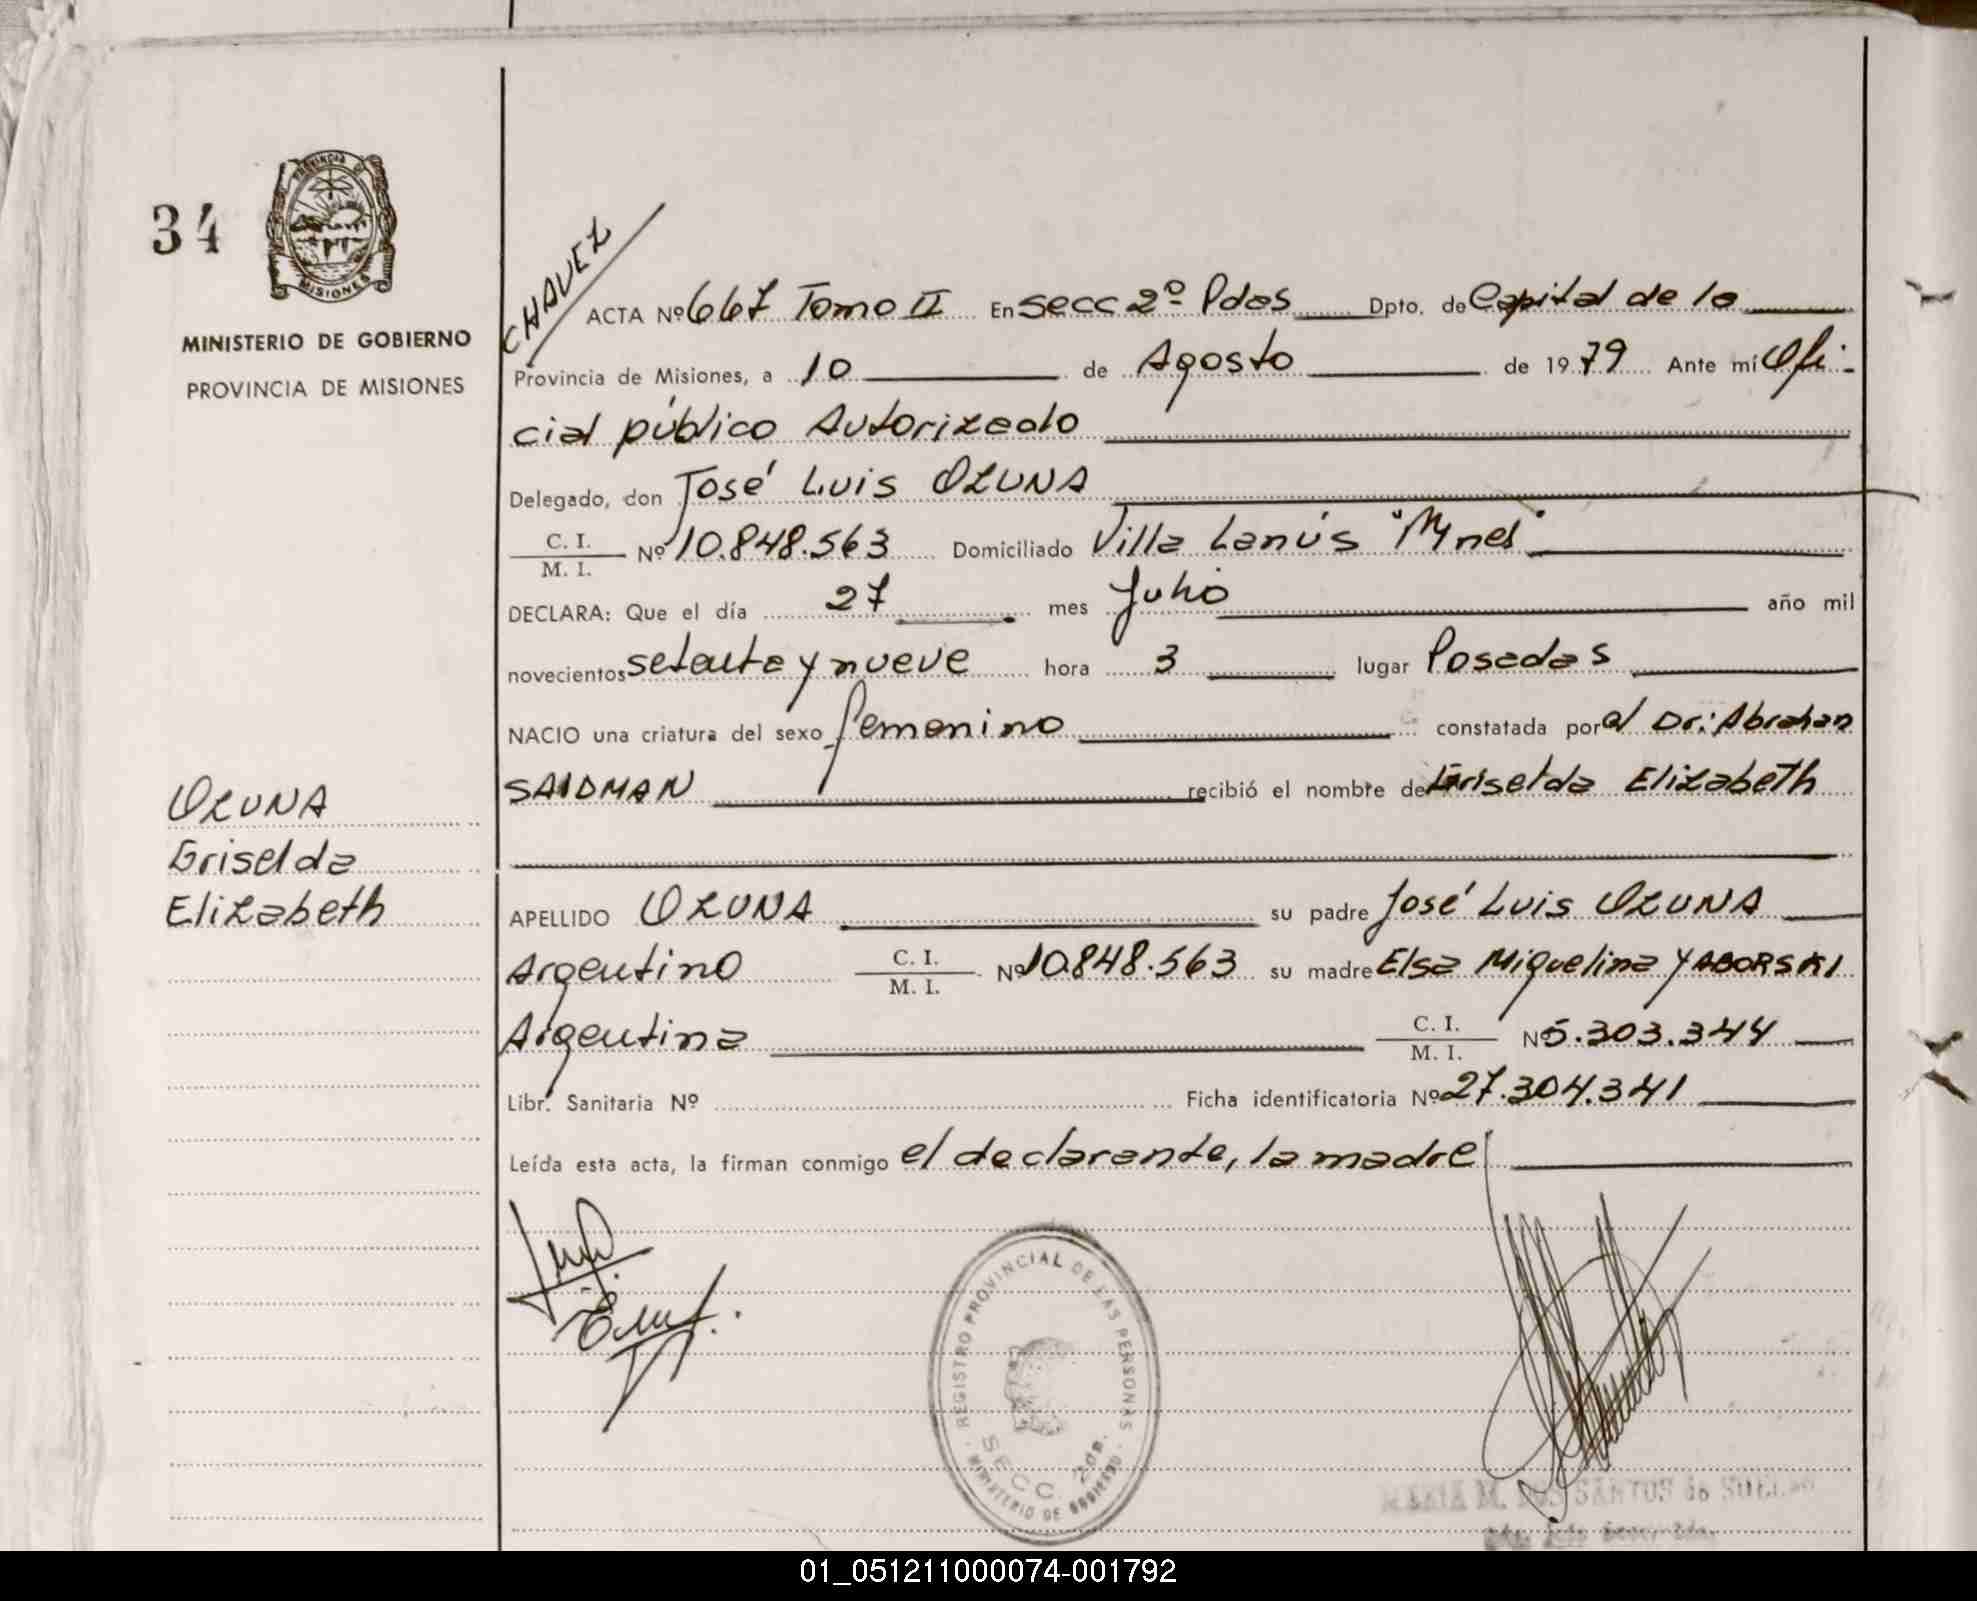 34
PROVINCIA DE
MISIONES
MINISTERIO DE GOBIERNO
PROVINCIA DE MISIONES
OZUNA
Griselda
Elizabeth
CHAVEZ
ACTA Nº 667 Tomo II En secc 2º Pdas Dpto. de Capital de la
Provincia de Misiones, a 10 de Agosto de 1979 Ante mí Ofi-
cial público Autorizado
Delegado, don José Luis OZUNA
C. I.
M. I. Nº 10.848.563 Domiciliado Villa Lanús "Mnes"
DECLARA: Que el día 27 mes Julio año mil
novecientos setenta y nueve hora 3 lugar Posadas
NACIO una criatura del sexo femenino constatada por el Dr: Abrahan
SAIDMAN recibió el nombre de Griselda Elizabeth
APELLIDO OZUNA su padre José Luis OZUNA
Argentino C. I.
M. I. Nº 10.848.563 su madre Elsa Miguelina YABORSKI
Argentina C. I.
M. I. Nº 5.303.344
Libr. Sanitaria Nº Ficha identificatoria Nº 27.304.341
Leída esta acta, la firman conmigo el declarante, la madre
REGISTRO PROVINCIAL DE LAS PERSONAS
SECC. 2da.
MINISTERIO DE GOBIERNO
MARIA M. DOS SANTOS de
01_051211000074-001792